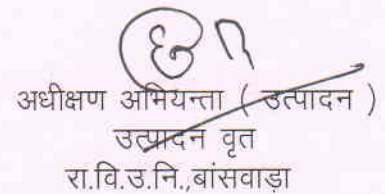 अधीक्षण अभियन्ता ( उत्पादन )
उत्पादन वृत
रा.वि.उ.नि.,बांसवाड़ा